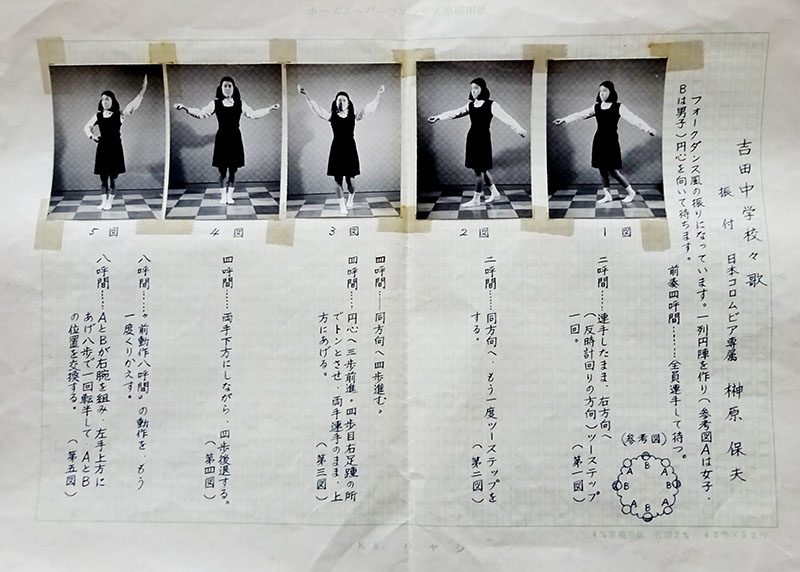 吉田中学校々歌
振付 日本コロムビア専属 榊原保夫
フォークダンス風の振りになっています。一列円陣を作り(参考図Aは女子・
Bは男子)円心を向いて待ちます。
前奏四呼間……全員連手して待つ。
1図
二呼間……連手したまま、右方向へ
(反時計回りの方向)ツーステップ
一回。
(第一図)
(参考図)
B
A
A
B
B
A
A
B
2図
二呼間……同方向へ、もう一度ツーステップを
する。
(第二図)
3図
四呼間……同方向へ四歩進む。
四呼間……円心へ三歩前進・四歩目右足踵の所
でトンとさせ、両手連手のまま、上
方にあげる。
(第三図)
4図
四呼間……両手下方にしながら、四歩後退する。
(第四図)
5図
八呼間……"前動作八呼間"の動作を、もう
一度くりかえす。
八呼間……AとBが右腕を組み、左手上方に
あげ八歩で一回転半して、AとB
の位置を交換する。
(第五図)